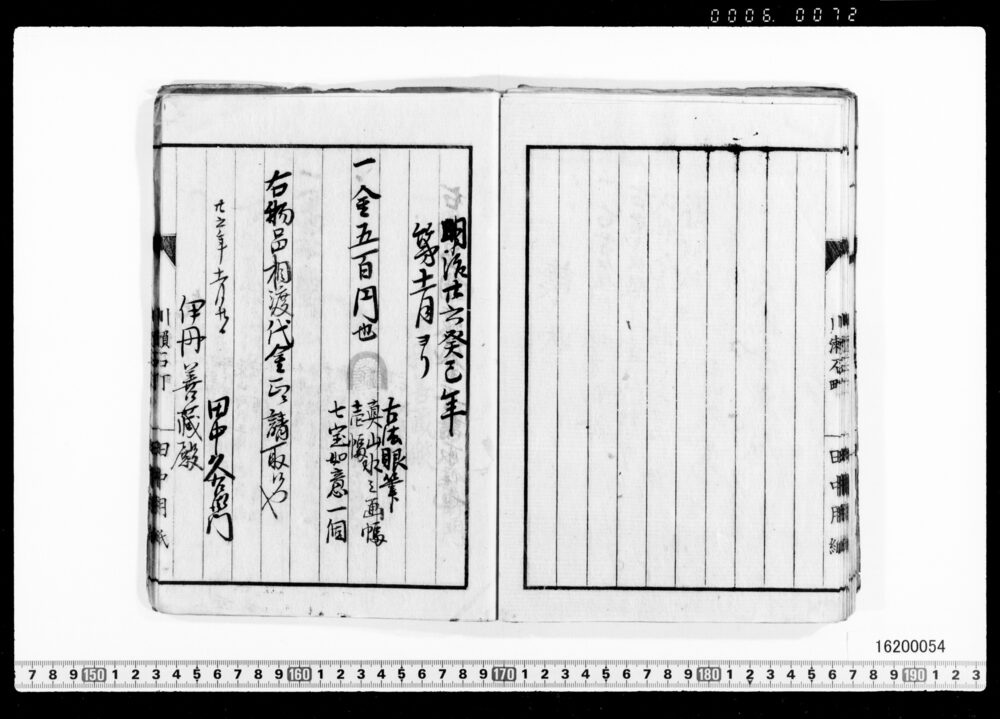 0006. 0072
明治廿六癸巳年
第十一月ヨリ
一金五百円也
古法眼筆
真山水之画幅
壱幅
七宝如意一個
右物品相渡代金正ニ請取候也
廿六年十一月廿
田中久右衛門
伊丹善蔵殿
川瀬石町
田中用紙
川瀬石町
田中用紙
16200054
7 8 9 150 1 2 3 4 5 6 7 8 9 160 1 2 3 4 5 6 7 8 9 170 1 2 3 4 5 6 7 8 9 180 1 2 3 4 5 6 7 8 9 190 1 2 3